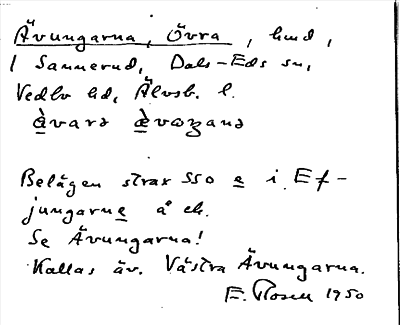 Ävungarna, Övra, hmd,
1 Sannerud, Dals-Eds sn,
Vedbo hd, Älvsb. l.
ὰvarə ὲvωʒanə
Belägen strax SSO e i Ef-
jungarne å ek.
Se Ävungarna!
Kallas äv. Västra Ävungarna.
E. Rosell 1950